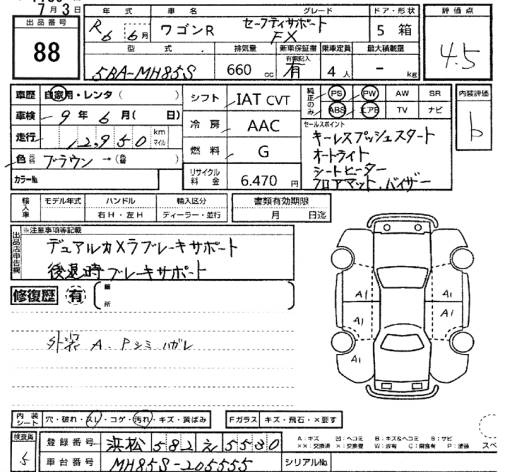 7月3日
出品番号
88
年式 車名 グレード ドア・形状 評価点
R6 6月 ワゴンR セーフティサポート FX 5 箱 4.5
型式 排気量 新車保証書 乗車定員 最大積載量
5BA-MH85S 660cc 有 4人 - kg
車歴 自家用・レンタ( ) シフト IAT CVT 純正のみ PS PW AW SR 内装評価
車検 9年6月( 日) 冷房 AAC ABS エアB TV ナビ b
走行 12,950 km マイル 燃料 G セールスポイント
色 ブラウン→( ) リサイクル料金 6.470円
カラーNo.
キーレスプッシュスタート
オートライト
シートヒーター
フロアマット、バイザー
輸入車 モデル年式 ハンドル 輸入区分 書類有効期限
右H・左H ディーラー・並行 月 日迄
出品店申告欄 ※注意事項等記載
デュアルカメラブレーキサポート
後退時ブレーキサポート
修復歴 有 箇所
外装 A、Pシミハガレ
A1 A1 A1 A1
内装シート 穴・破れ・スレ・コゲ・汚れ・キズ・黄ばみ Fガラス キズ・飛石・×要す
検査員 5 登録番号 浜松582え5530
車台番号 MH85S-205555 シリアルNo.
A:キズ U:ヘコミ B:キズ&ヘコミ S:サビ
××:交換済 ×:交換要 W:補修 C:腐蝕有 P:塗装